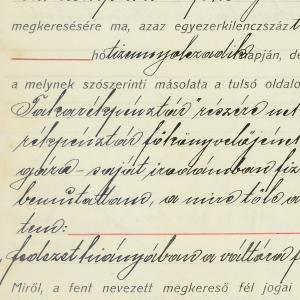 megkeresésére ma, azaz egyezerkilenczszáz
hó tizennyolczadik napján, de
a melynek szószerinti másolata a tulsó oldalo
Takarékpénztár" részére
rékpénztár főkönyvelőjéne
gára – saját irodámban fiz
bemutattam, a mire től e a
tem:
fedezet hiányában a váltóra f
Miről, a fent nevezett megkereső fél jogai